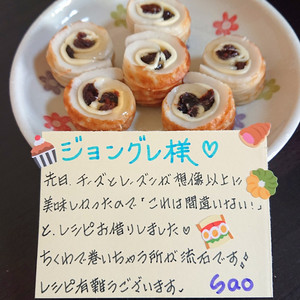 ジョングレ様♡
先日、チーズとレーズンが想像以上に
美味しかったので「これは間違いない!」
と、レシピお借りしました♡
ちくわで巻いちゃう所が流石です!
レシピ有難うございます。 sao